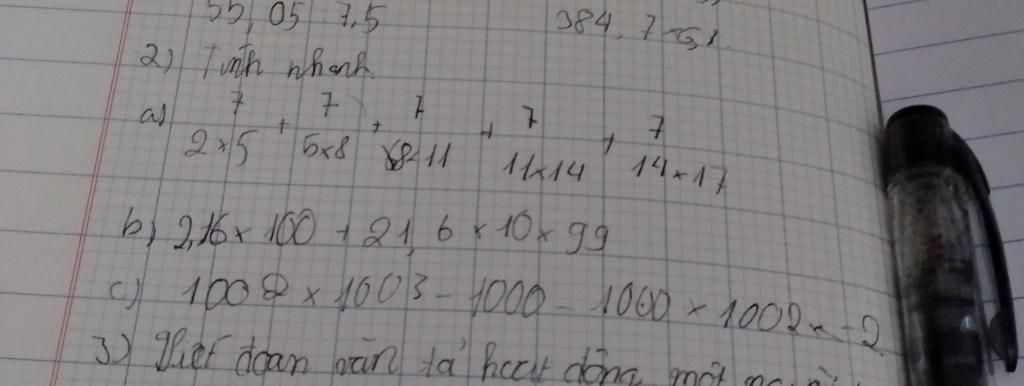 55,05 7,5 384,7
2) Tính nhanh.
a) 7/2×5 + 7/5×8 + 7/8×11 + 7/11×14 + 7/14×17
b) 2,16 × 100 + 21,6 × 10 × 99
c) 1002 × 1003 - 1000 - 1000 × 1002 × - 2
3) Viết đoạn văn tả hoạt động một